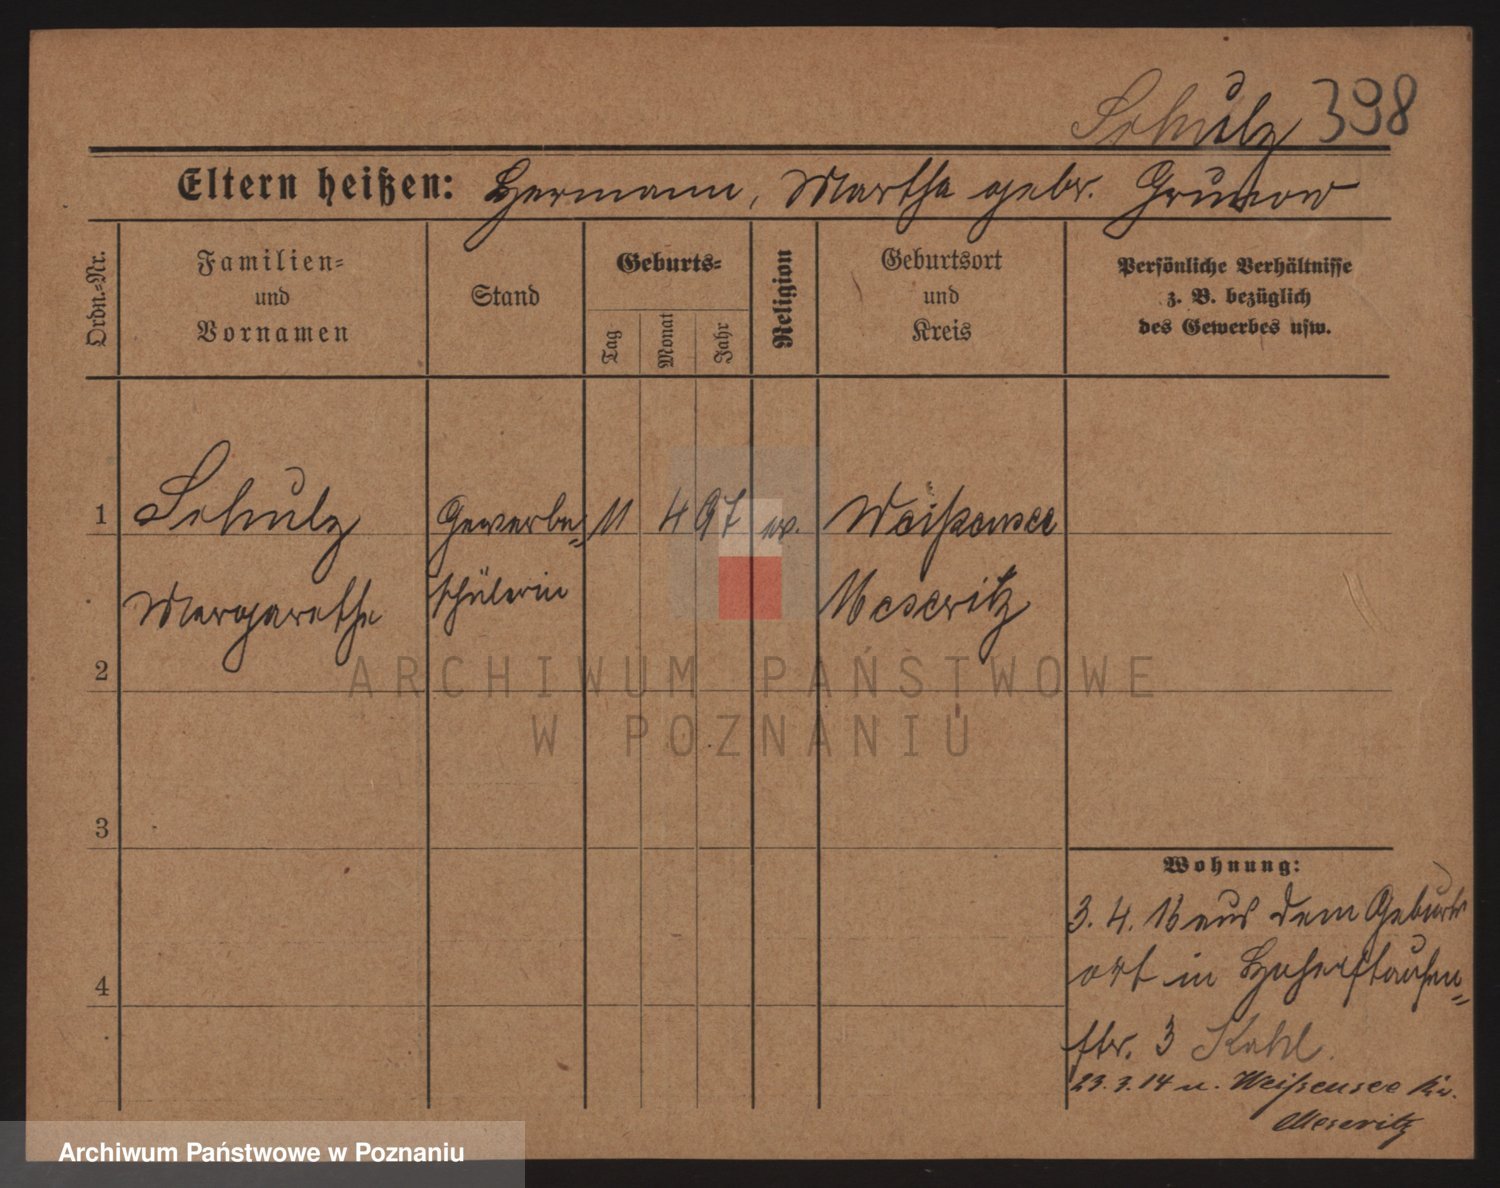 Schulz 398
Eltern heißen: Hermann, Martha gebr. Grunow
Ordn.-Nr.
Familien-
und
Vornamen
Stand
Geburts-
Tag
Monat
Jahr
Religion
Geburtsort
und
Kreis
Persönliche Verhältnisse
z. B. bezüglich
des Gewerbes usw.
1 Schulz Gewerbe- 11 4 97 ev. Weißensee
Margarethe schülerin Meseritz
2
ARCHIWUM PAŃSTWOWE
W POZNANIU
3
Wohnung:
3. 4. 13 aus dem Geburts
ort in Hohenstaufen-
str. 3 Kahl.
4
23.3.14 n. Weißensee Kr.
Meseritz
Archiwum Państwowe w Poznaniu